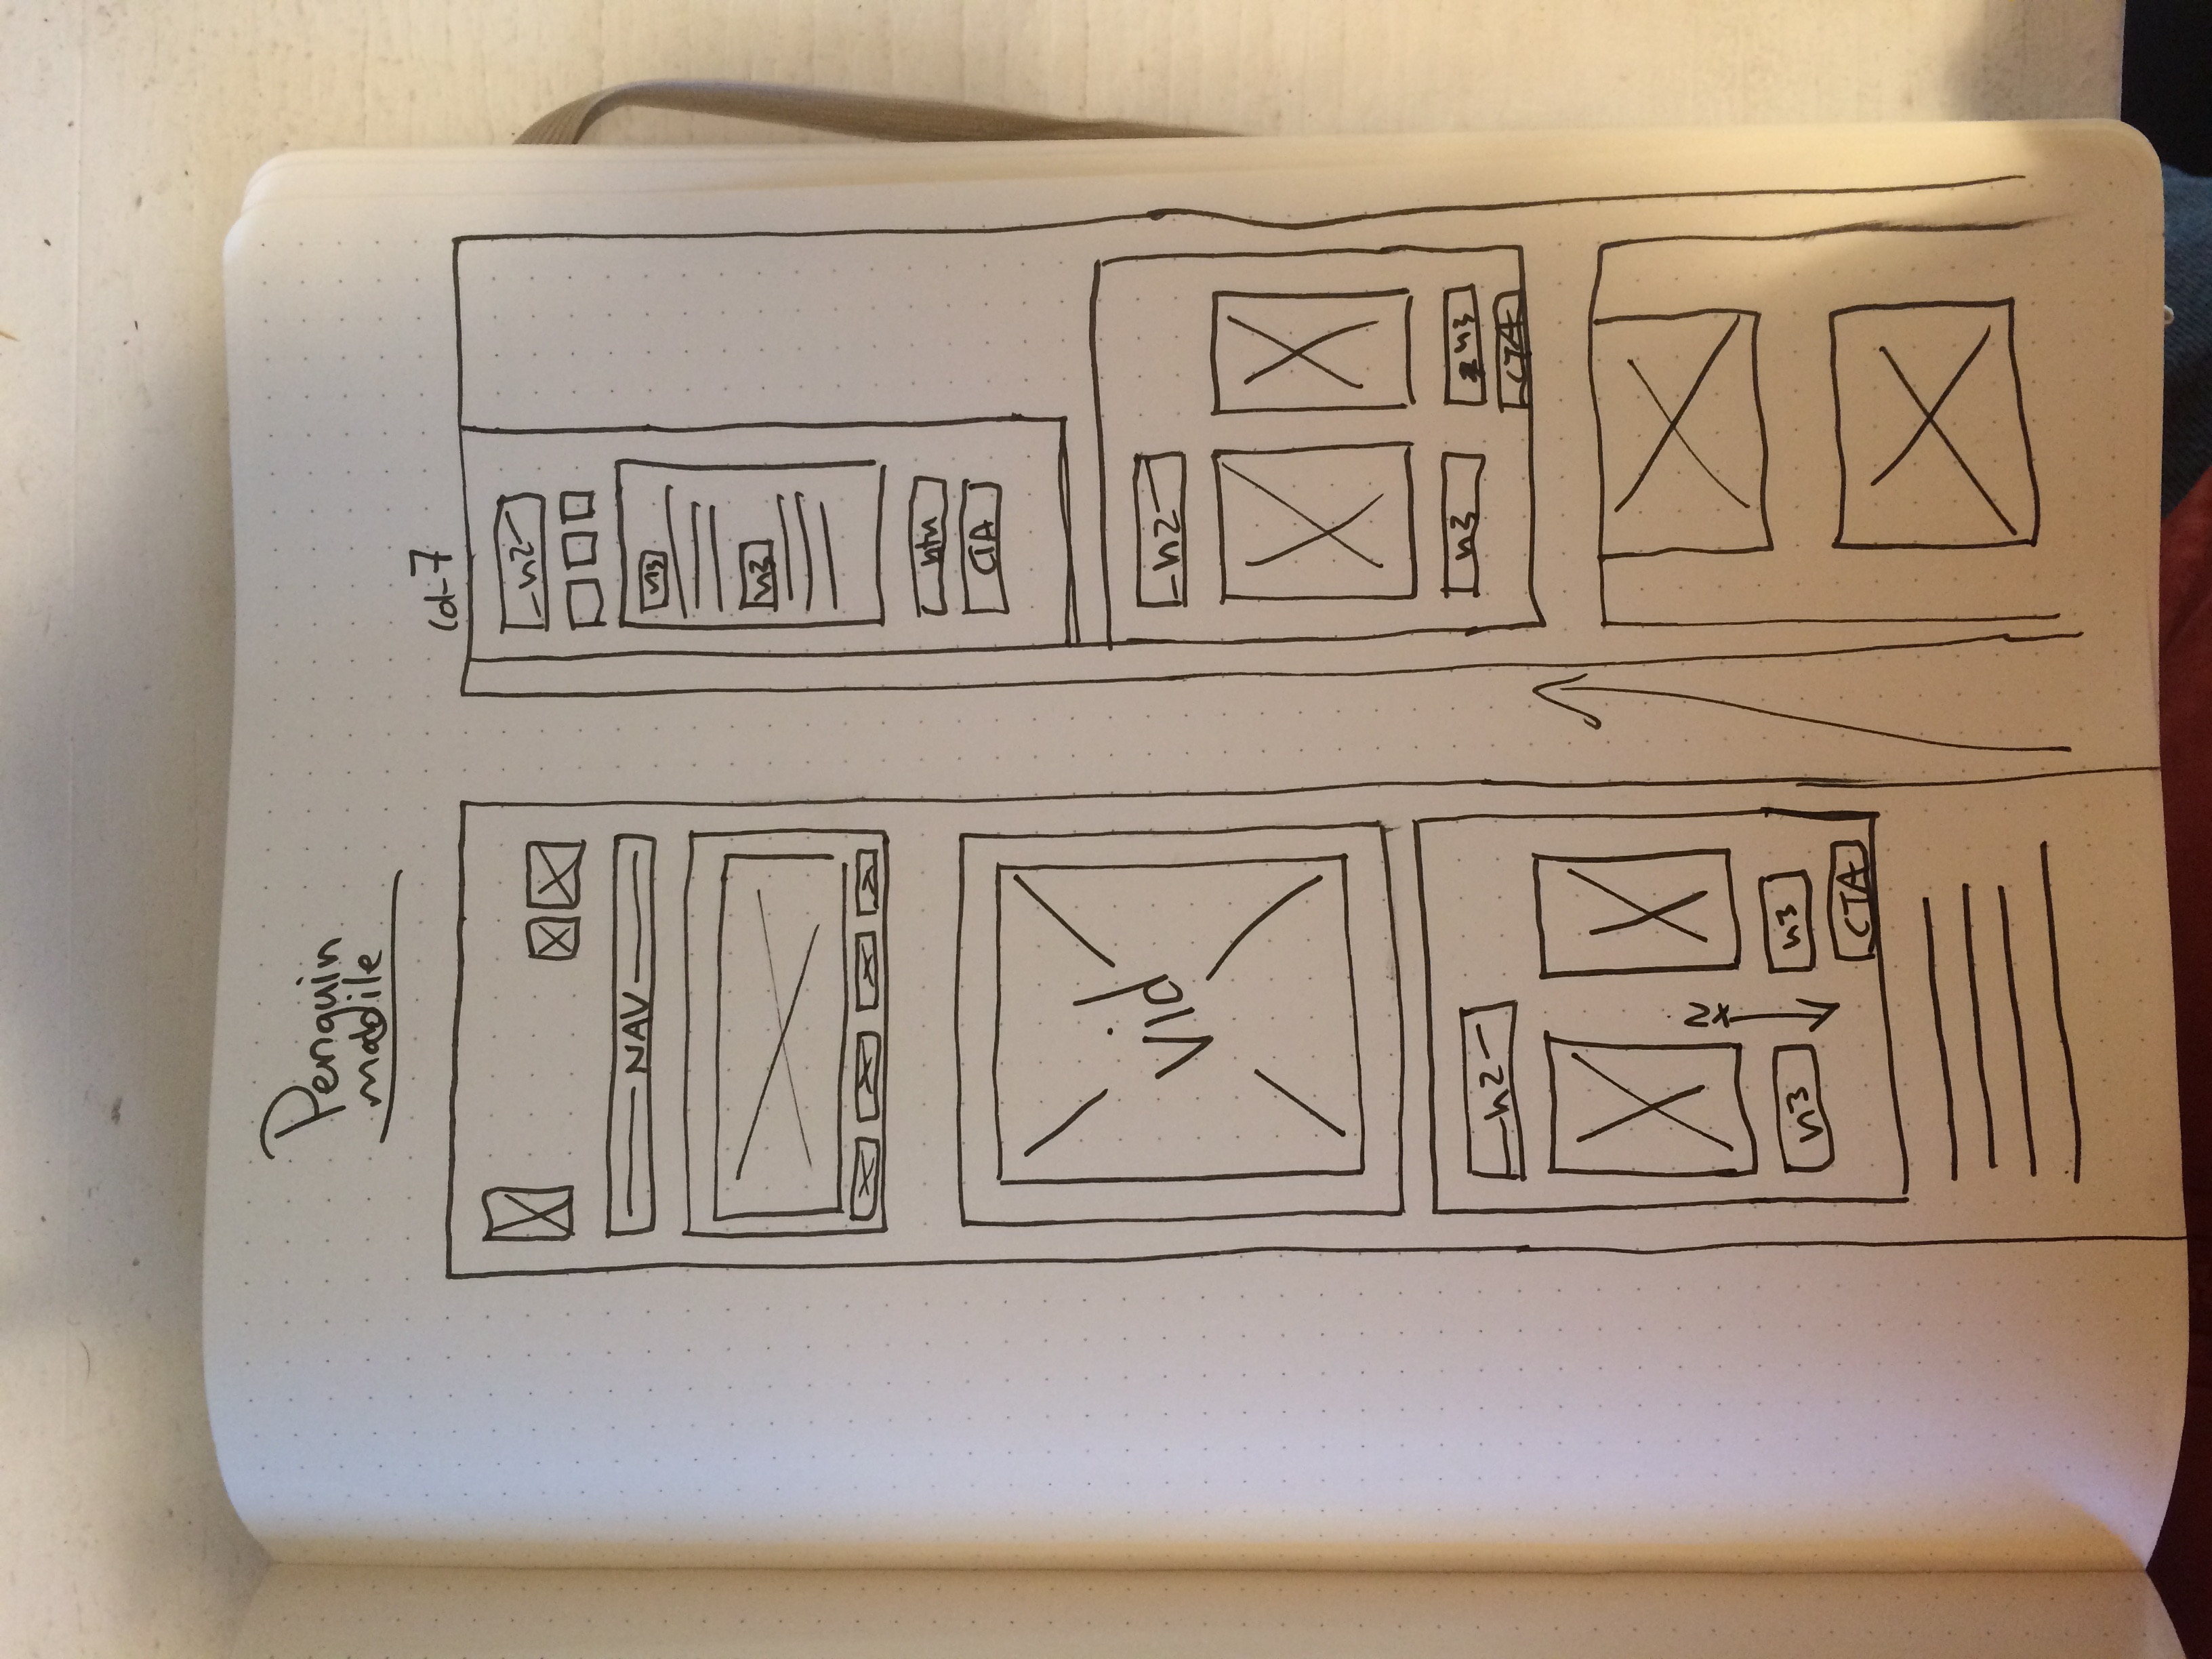 Penguin
mobile
NAV
Vid
h2
x2
h3
h3
CTA
col-7
h2
h3
h3
btn
CTA
h2
h3
h3
CTA